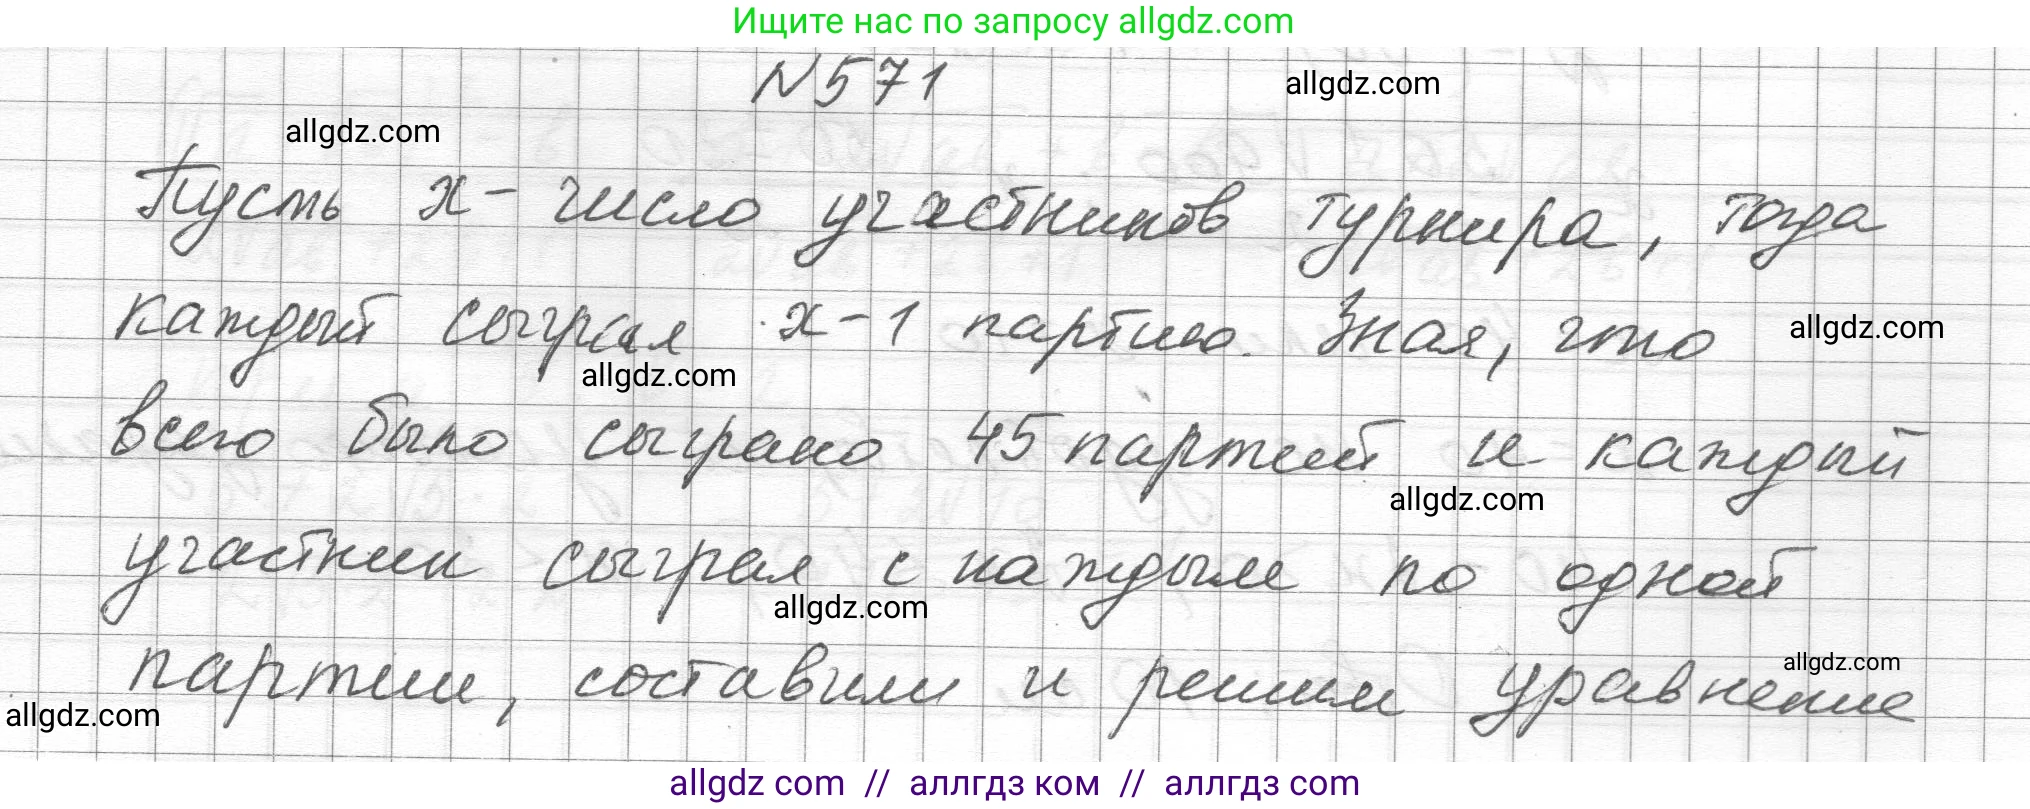 Ищите нас по запросу allgdz.com
N571
allgdz.com
allgdz.com
Пусть x - число участников турнира, тогда
каждый сыграл x-1 партию. Зная, что
allgdz.com
allgdz.com
всего было сыграно 45 партий и каждый
allgdz.com
участник сыграл с каждым по одной
allgdz.com
партии, составили и решим уравнение
allgdz.com
allgdz.com
allgdz com // аллгдз ком // аллгдз com